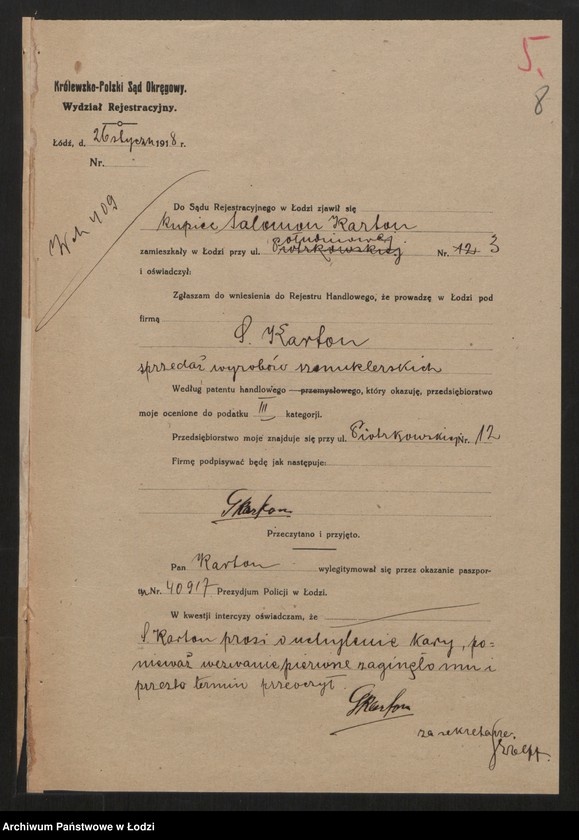 5.
8
Królewsko-Polski Sąd Okręgowy.
Wydział Rejestracyjny.
Łódź, d. 26 styczn 1918 r.
Nr.
409
Do Sądu Rejestracyjnego w Łodzi zjawił się
kupiec Salomon Karton
południowej
zamieszkały w Łodzi przy ul. Piotrkowskiej Nr. 12 3
i oświadczył:
Zgłaszam do wniesienia do Rejestru Handlowego, że prowadzę w Łodzi pod
firmą
S. Karton
sprzedaż wyrobów szmuklerskich
Według patentu handlowego przemysłowego, który okazuję, przedsiębiorstwo
moje ocenione do podatku III kategorji.
Przedsiębiorstwo moje znajduje się przy ul. Piotrkowskiej Nr. 12
Firmę podpisywać będę jak następuje:
SKarton
Przeczytano i przyjęto.
Pan Karton wylegitymował się przez okazanie paszpor-
tu Nr. 40917 Prezydjum Policji w Łodzi.
W kwestji intercyzy oświadczam, że
S Karton prosi o uchylenie kary, po=
nieważ wezwanie pierwsze zaginęło mu i
przeto termin przeoczył.
SKarton
za sekretarza:
Archiwum Państwowe w Łodzi